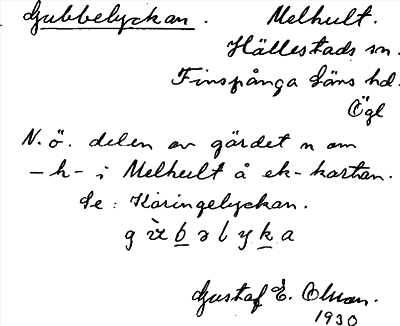 Gubbelyckan. Melhult.
Hällestads sn.
Finspånga läns hd.
Ögl
N.ö. delen av gärdet n om
-h- i Melhult å ek-kartan.
Se: Käringelyckan.
gùbəlyka
Gustaf E. Olson.
1930